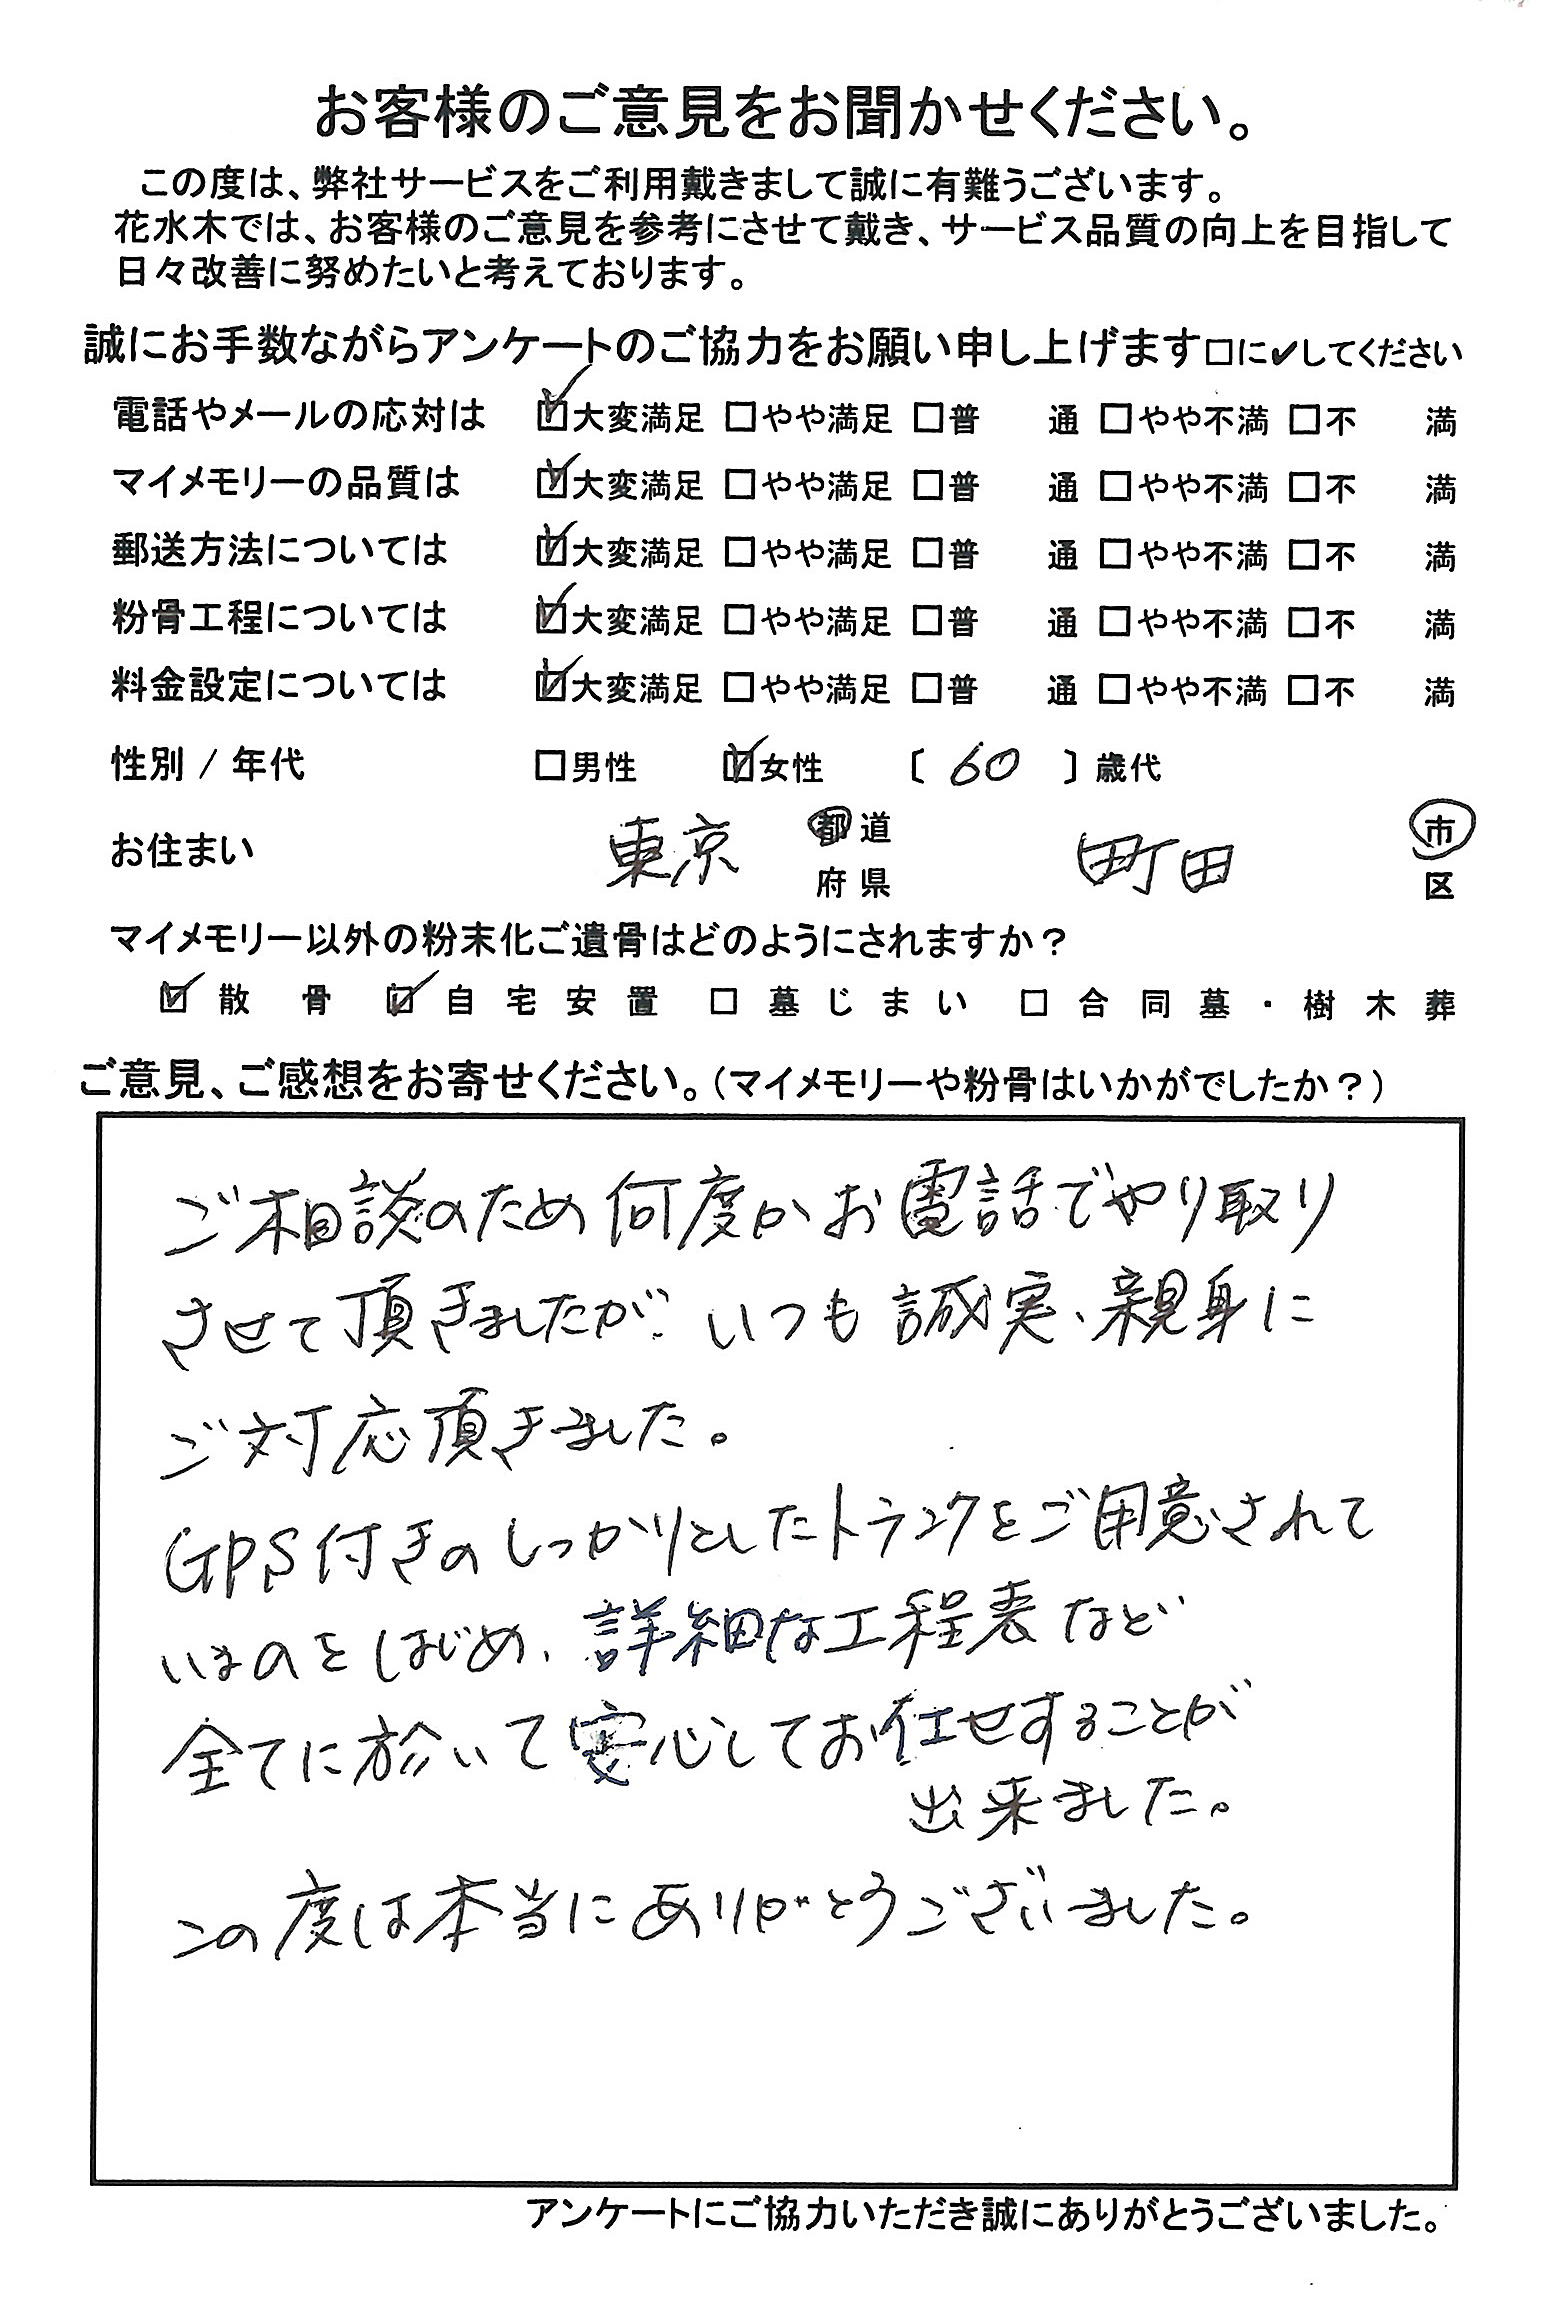 お客様のご意見をお聞かせください。
この度は、弊社サービスをご利用戴きまして誠に有難うございます。
花水木では、お客様のご意見を参考にさせて戴き、サービス品質の向上を目指して
日々改善に努めたいと考えております。
誠にお手数ながらアンケートのご協力をお願い申し上げます□に✔してください
電話やメールの応対は ☑大変満足 □やや満足 □普 通 □やや不満 □不 満
マイメモリーの品質は ☑大変満足 □やや満足 □普 通 □やや不満 □不 満
郵送方法については ☑大変満足 □やや満足 □普 通 □やや不満 □不 満
粉骨工程については ☑大変満足 □やや満足 □普 通 □やや不満 □不 満
料金設定については ☑大変満足 □やや満足 □普 通 □やや不満 □不 満
性別 / 年代 □男性 ☑女性 〔 60 〕歳代
お住まい 東京 都道府県 町田 市区
マイメモリー以外の粉末化ご遺骨はどのようにされますか？
☑ 散 骨 ☑ 自 宅 安 置 □ 墓 じ ま い □ 合 同 墓 ・ 樹 木 葬
ご意見、ご感想をお寄せください。（マイメモリーや粉骨はいかがでしたか？）
ご相談のため何度かお電話でやり取り
させて頂きましたが、いつも誠実、親身に
ご対応頂きました。
GPS付きのしっかりとしたトランクをご用意されて
いるのをはじめ、詳細な工程表など
全てに於いて安心してお任せすることが
出来ました。
この度は本当にありがとうございました。
アンケートにご協力いただき誠にありがとうございました。